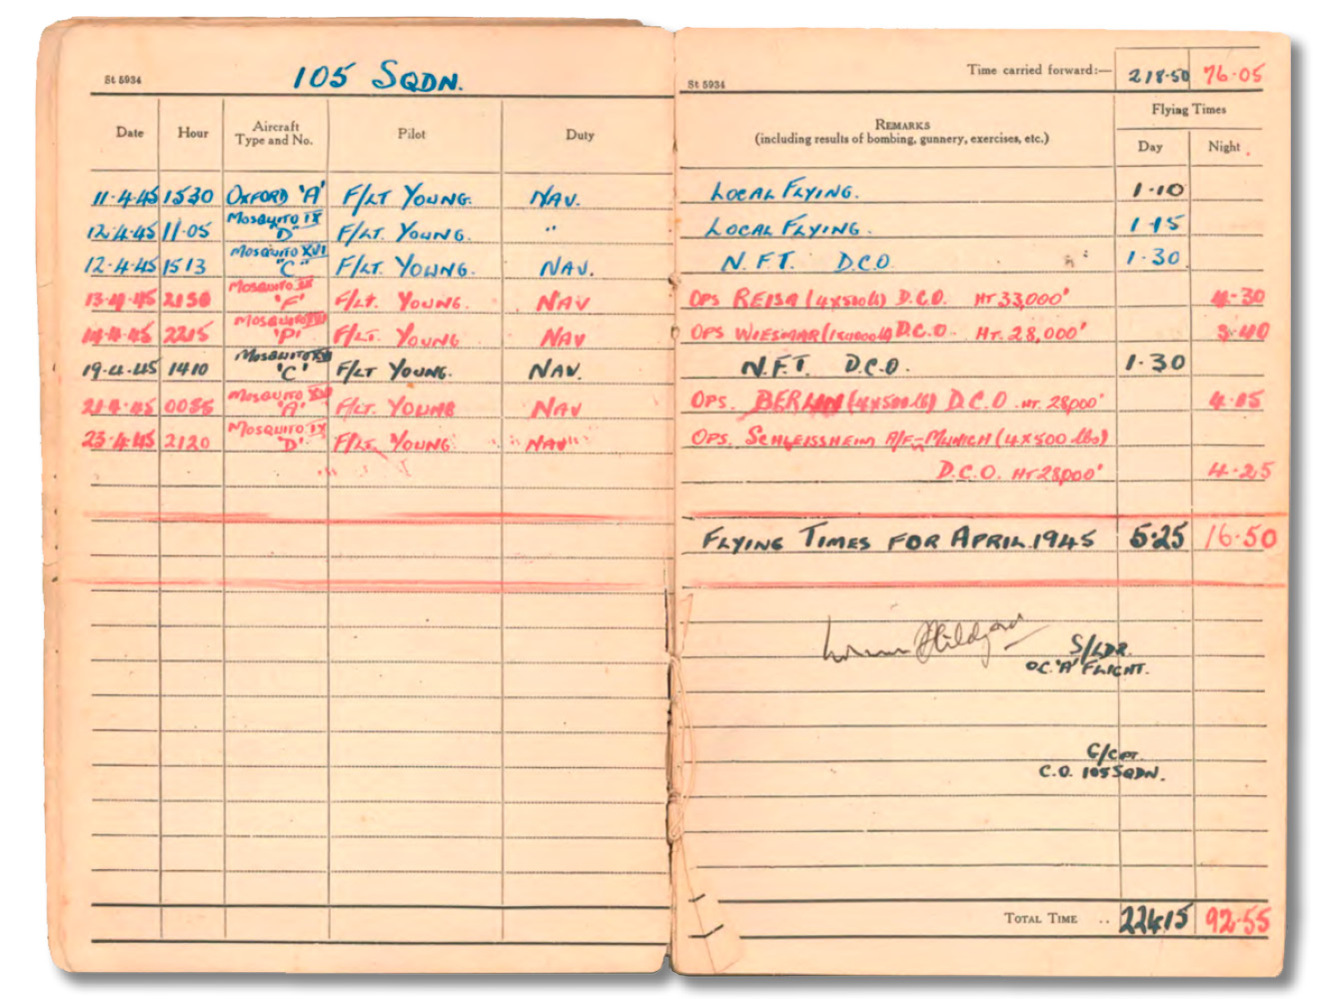 St 5934
105 SQDN.
Date Hour Aircraft Type and No. Pilot Duty
11·4·45 1530 OXFORD 'A' F/LT YOUNG. NAV.
12·4·45 11·05 MOSQUITO IX "D" F/LT. YOUNG. "
12·4·45 1513 MOSQUITO XVI "C" F/LT. YOUNG. NAV.
13·4·45 2130 MOSQUITO "F" F/LT. YOUNG. NAV
14·4·45 2215 MOSQUITO 'P' F/LT. YOUNG NAV
19·4·45 1410 MOSQUITO 'C' F/LT YOUNG. NAV.
21·4·45 0035 MOSQUITO XVI 'A' F/LT. YOUNG NAV
23·4·45 2120 MOSQUITO IX 'D' F/LT. YOUNG NAV
St 5934
Time carried forward:— 218·50 76·05
REMARKS
(including results of bombing, gunnery, exercises, etc.)
Flying Times
Day Night
LOCAL FLYING. 1·10
LOCAL FLYING. 1·15
N.F.T. D.C.O 1·30
OPS REISA (4x500lb) D.C.O. HT 33,000' 4·30
OPS WIESMAR D.C.O. HT. 28,000' 3·40
N.F.T. D.C.O. 1·30
OPS. BERLIN (4x500lb) D.C.O. HT. 28,000' 4·15
OPS. SCHLEISSHEIM A/F–MUNICH (4x500 lbs)
D.C.O. HT 28,000' 4·25
FLYING TIMES FOR APRIL 1945 5·25 16·50
S/LDR.
O.C. 'A' FLIGHT.
G/CPT.
C.O. 105 SQDN.
TOTAL TIME .. 224·15 92·55